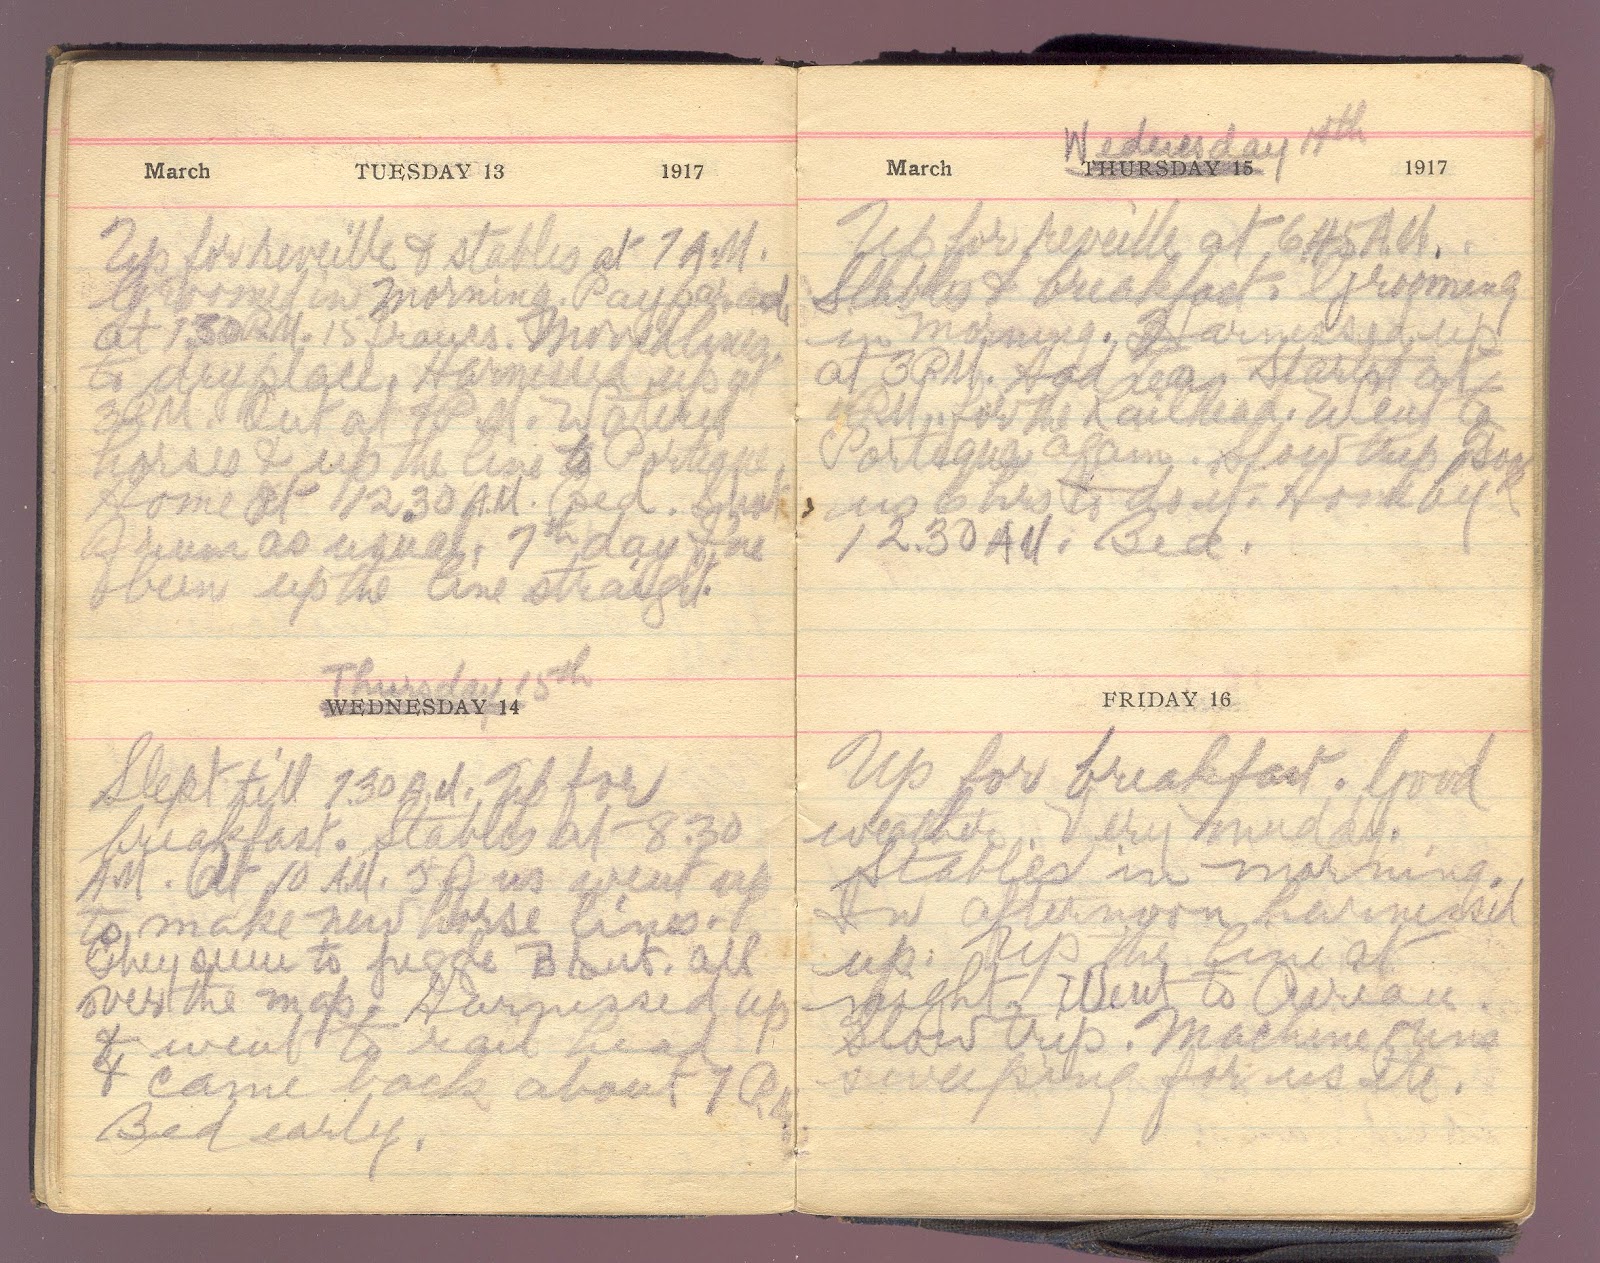 March TUESDAY 13 1917
Up for reveille & stables at 7 A.M.
Groomed in morning. Pay parade
at 1.30 P.M. 15 francs. Moved lines
to dry place. Harnessed up at
3 P.M. Out at P.M. Watered
horses & up the line to
Home at 12.30 A.M. Bed.
rum as usual. 7th day I've
been up the line straight.
Thursday 15th
WEDNESDAY 14
Slept till 7.30 A.M. Up for
breakfast. Stables at 8.30
A.M. At 10 A.M. 5 of us went up
to make new horse lines.
They seem to juggle B about all
over the map. Harnessed up
& went to rail head
& came back about 7 P.M.
Bed early.
Wednesday 14th
March THURSDAY 15 1917
Up for reveille at 6.45 A.M.
Stables & breakfast. Grooming
in morning. Harnessed up
at 3 P.M. Had tea. Started at
P.M. for the Railhead. Went to
again. Slow trip Took
us 6 hrs to do it. Home by
12.30 AM. Bed.
FRIDAY 16
Up for breakfast. Good
weather. Very muddy.
Stables in morning.
In afternoon harnessed
up. Up the line at
night. Went to
Slow trip. Machine Guns
sweeping for us etc.